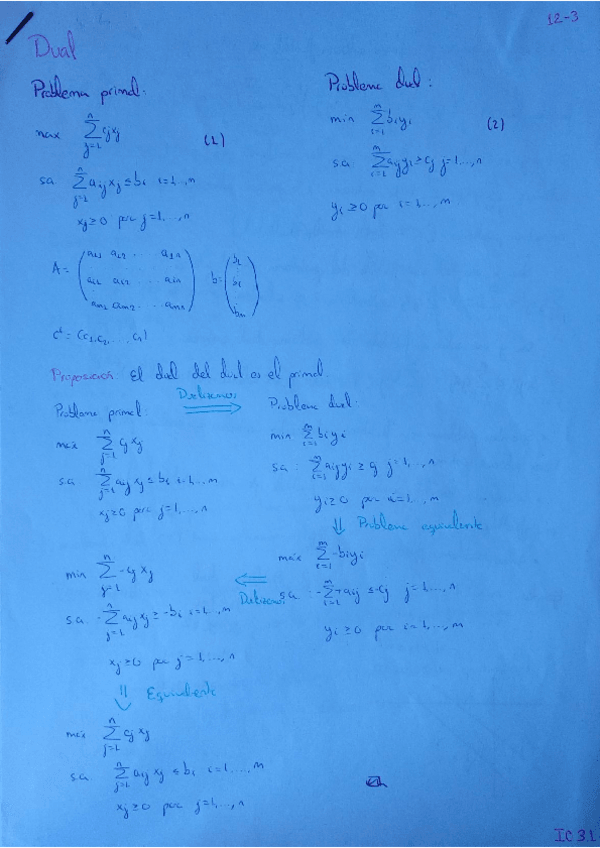 12-3
Dual
Problema primal:
max ∑_{j=1}^{n} c_j x_j (1)
s.a. ∑_{j=1}^{n} a_ij x_j ≤ b_i i=1,...,m
x_j ≥ 0 para j=1,...,n
Problema dual:
min ∑_{i=1}^{m} b_i y_i (2)
s.a. ∑_{i=1}^{m} a_ij y_i ≥ c_j j=1,...,n
y_i ≥ 0 para i=1,...,m
A =
a_11 a_12 ... a_1n
a_i1 a_i2 ... a_in
a_m1 a_m2 ... a_mn
b =
b_1
b_i
b_m
c^t = (c_1, c_2, ..., c_n)
Proposición: El dual del dual es el primal.
Problema primal:
max ∑_{j=1}^{n} c_j x_j
s.a. ∑_{j=1}^{n} a_ij x_j ≤ b_i i=1,...,m
x_j ≥ 0 para j=1,...,n
Dualizamos ⇒
Problema dual:
min ∑_{i=1}^{m} b_i y_i
s.a: ∑_{i=1}^{m} a_ij y_i ≥ c_j j=1,...,n
y_i ≥ 0 para i=1,...,m
⇓ Problema equivalente
max ∑_{i=1}^{m} -b_i y_i
s.a: -∑_{i=1}^{m} a_ij ≤ -c_j j=1,...,n
y_i ≥ 0 para i=1,...,m
⇐ Dualizamos
min ∑_{j=1}^{n} -c_j x_j
s.a. -∑_{j=1}^{n} a_ij x_j ≥ -b_i i=1,...,m
x_j ≥ 0 para j=1,...,n
⇓ Equivalente
max ∑_{j=1}^{n} c_j x_j
s.a. ∑_{j=1}^{n} a_ij x_j ≤ b_i i=1,...,m
x_j ≥ 0 para j=1,...,n
IC 3.1